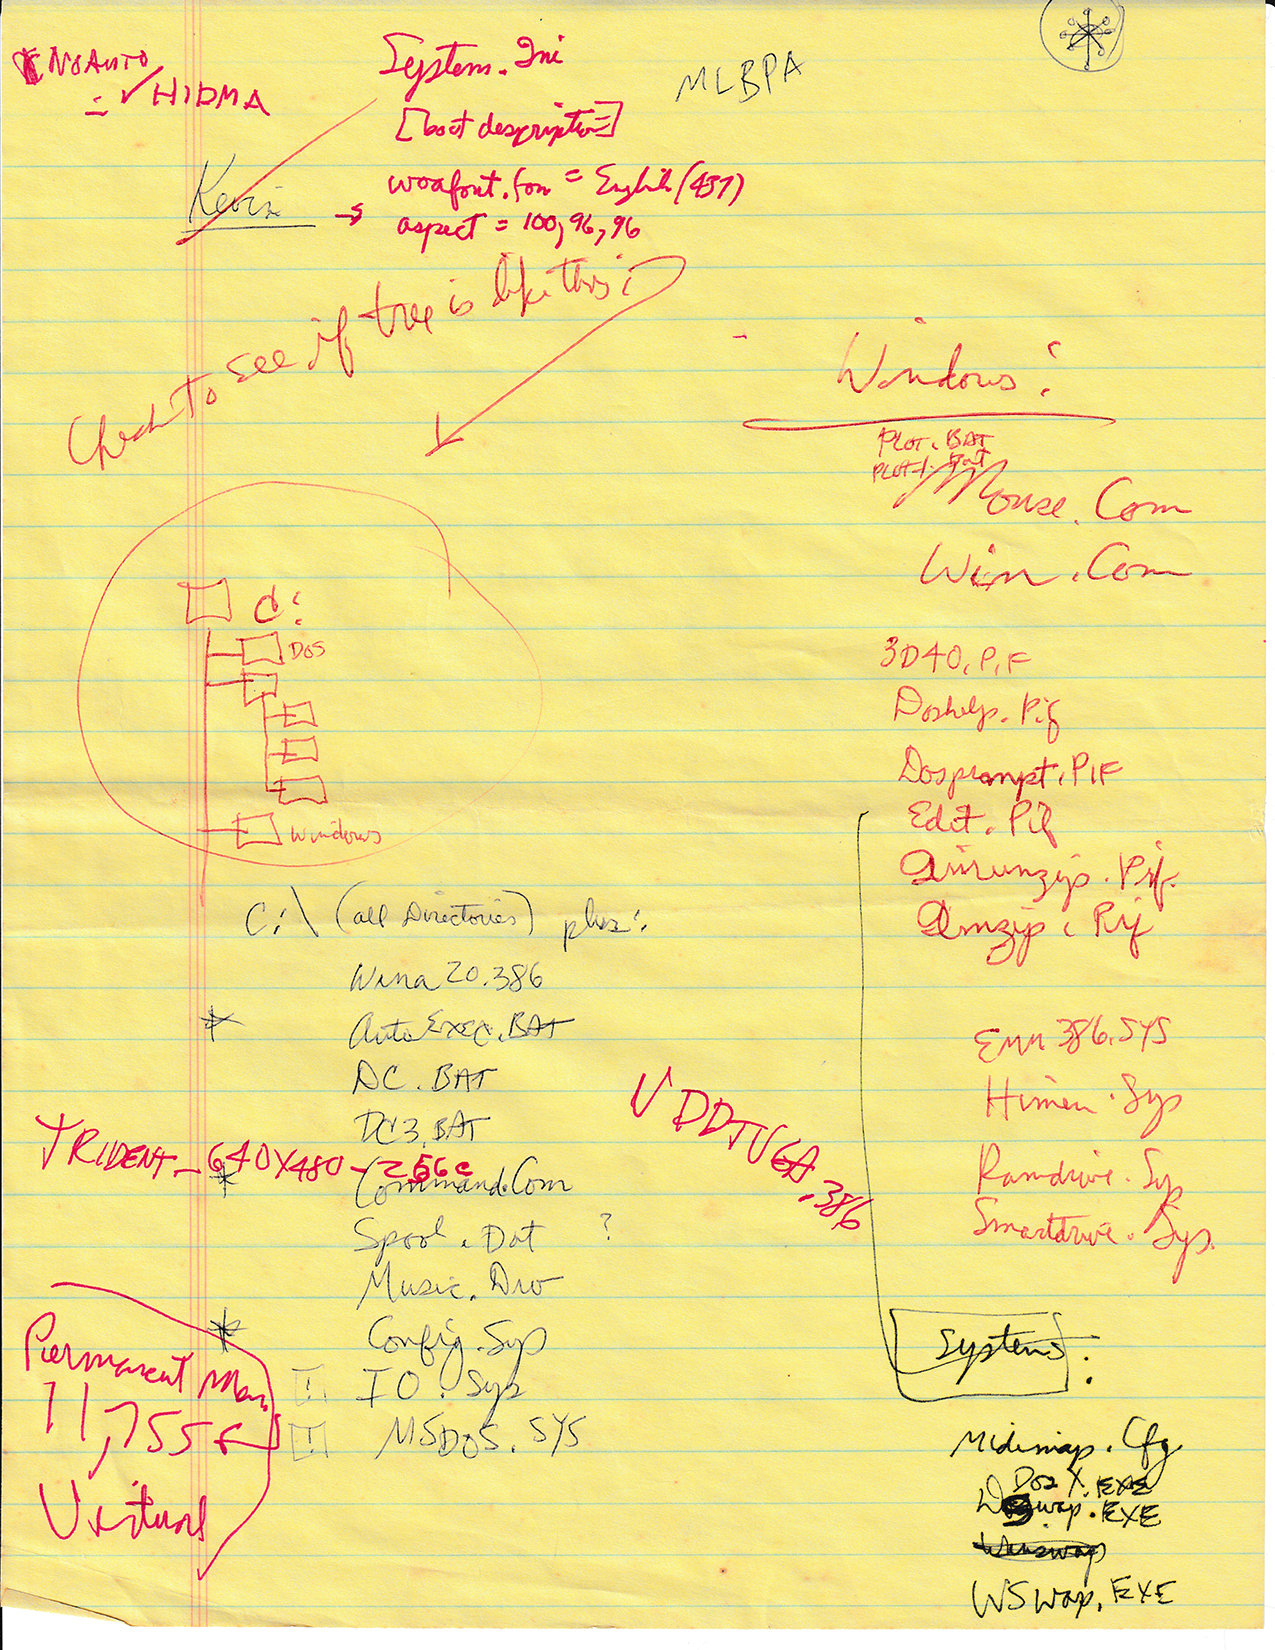 NoAuto
= ✓ HIDMA
System.Ini
[boot description]
woafont.fon = English (437)
→ aspect = 100, 96, 96
MLBPA
Kevin
Check to see if tree is like this:
C:
DOS
Windows
Windows:
PLOT.BAT
PLOT1.BAT
Mouse.Com
Win.Com
3D40.PIF
Doshelp.Pif
Dosprompt.PIF
Edit.Pif
.Pif
.Pif
Emm386.SYS
Himem.Sys
Ramdrive.Sys
Smartdrive.Sys
C:\ (all Directories) plus:
Wina20.386
* AutoExec.BAT
DC.BAT
DC3.BAT
TRIDENT - 640X480 - 256c
* Command.Com
Spool.Dat ?
Music.Drv
* Config.Sys
! IO.Sys
! MSDOS.SYS
VDDTVGA.386
Permanent Mem.
11,755
Virtual
System:
Midimap.Cfg
DosX.EXE
swap.EXE
Winswap
WSwap.EXE